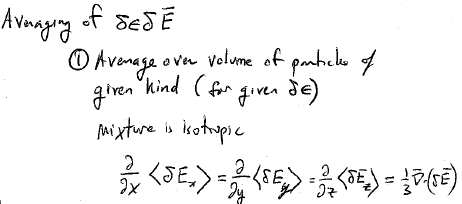 Averaging of δϵδE̅
① Average over volume of particles of
given kind (for given δϵ)
mixture is isotropic
∂/∂x <δEₓ> = ∂/∂y <δE_y> = ∂/∂z <δE_z> = 1/3 ∇̅·(δE̅)